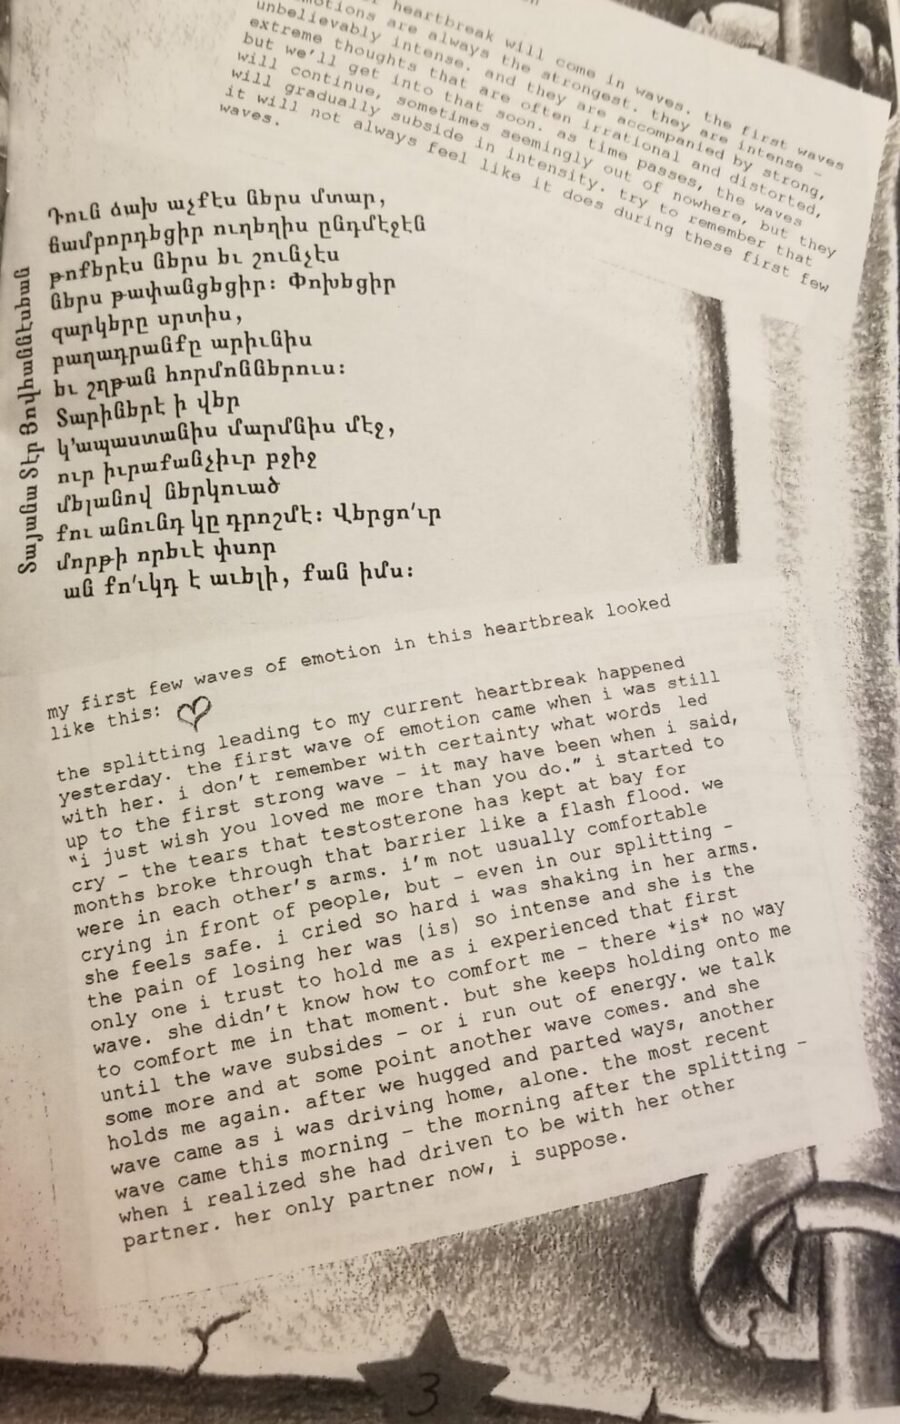 heartbreak will come in waves. the first waves
emotions are always the strongest. they are intense –
unbelievably intense. and they are accompanied by strong,
extreme thoughts that are often irrational and distorted,
but we'll get into that soon. as time passes, the waves
will continue, sometimes seemingly out of nowhere, but they
will gradually subside in intensity. try to remember that
it will not always feel like it does during these first few
waves.
Դուն ձախ աչքէս ներս մտար,
ճամբորդեցիր ուղեղիս ընդմէջէն
թոքերէս ներս եւ շունչէս
ներս թափանցեցիր։ Փոխեցիր
զարկերը սրտիս,
բաղադրանքը արիւնիս
եւ շղթան հորմոններուս։
Տարիներէ ի վեր
կ՚ապաստանիս մարմնիս մէջ,
ուր իւրաքանչիւր բջիջ
մելանով ներկուած
քու անունդ կը դրոշմէ։ Վերցո՛ւր
մորթի որեւէ փսոր
ան քո՛ւկդ է աւելի, քան իմս։
Տայանա Տէր Յովհաննէսեան
my first few waves of emotion in this heartbreak looked
like this: ♡
the splitting leading to my current heartbreak happened
yesterday. the first wave of emotion came when i was still
with her. i don't remember with certainty what words led
up to the first strong wave – it may have been when i said,
"i just wish you loved me more than you do." i started to
cry – the tears that testosterone has kept at bay for
months broke through that barrier like a flash flood. we
were in each other's arms. i'm not usually comfortable
crying in front of people, but – even in our splitting –
she feels safe. i cried so hard i was shaking in her arms.
the pain of losing her was (is) so intense and she is the
only one i trust to hold me as i experienced that first
wave. she didn't know how to comfort me – there *is* no way
to comfort me in that moment. but she keeps holding onto me
until the wave subsides – or i run out of energy. we talk
some more and at some point another wave comes. and she
holds me again. after we hugged and parted ways, another
wave came as i was driving home, alone. the most recent
wave came this morning – the morning after the splitting –
when i realized she had driven to be with her other
partner. her only partner now, i suppose.
3